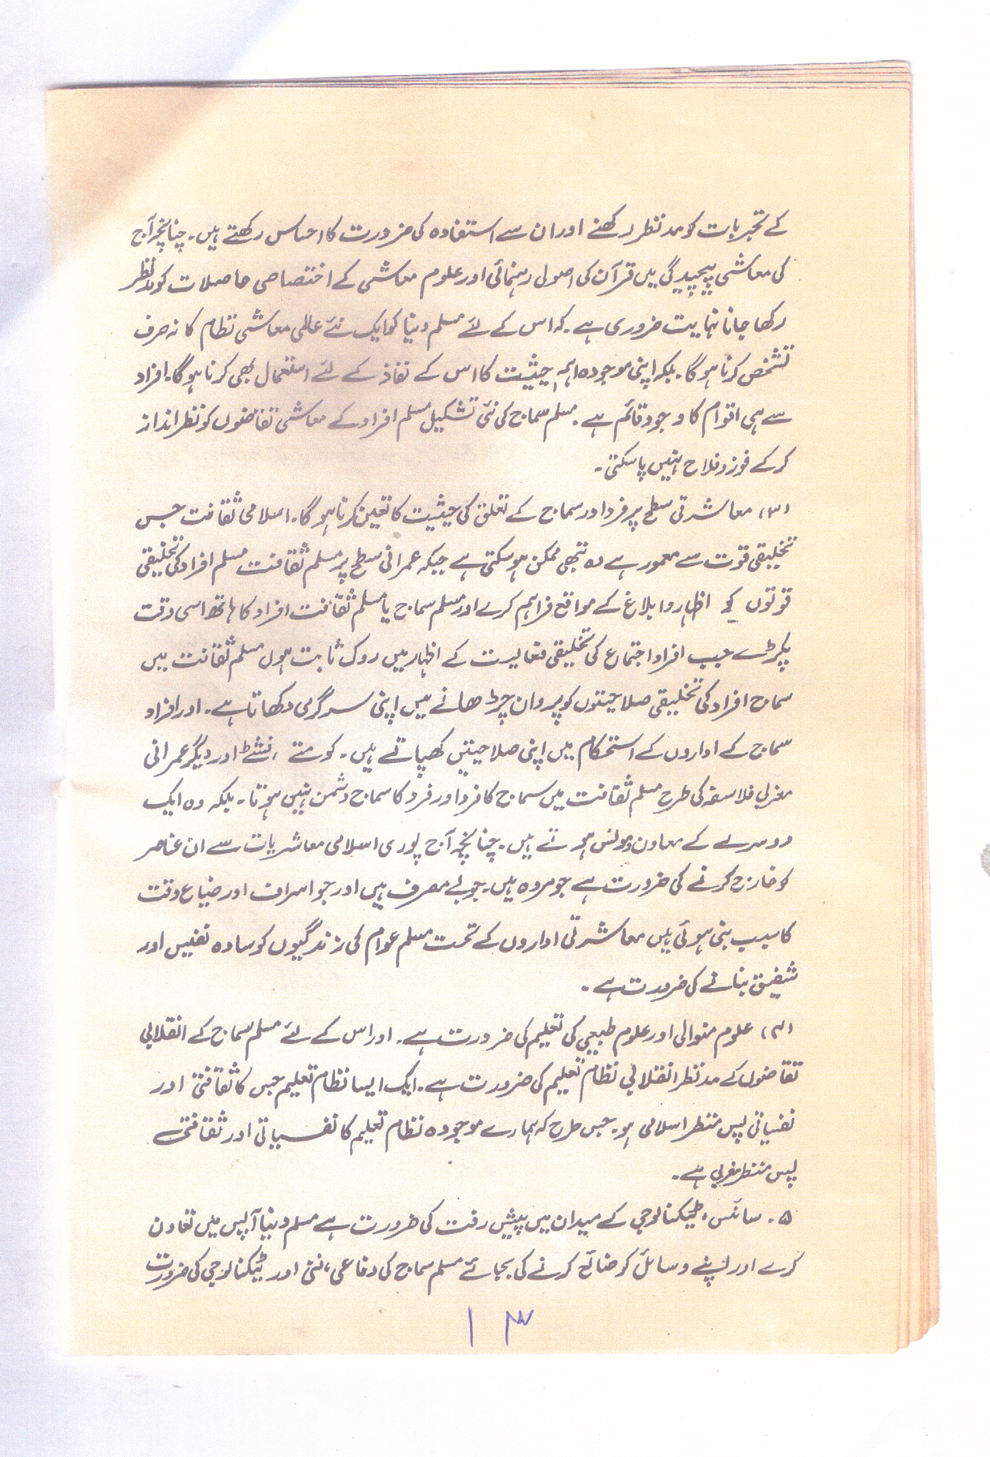 کے تجربات کو مدنظر رکھنے اور ان سے استفادہ کی ضرورت کا احساس رکھتے ہیں۔ چنانچہ آج
کی معاشی پیچیدگی میں قرآن کی اصولی رہنمائی اور علوم معاشی کے اختصاصی حاصلات کو مدنظر
رکھا جانا نہایت ضروری ہے۔ کہ اس کے لئے مسلم دنیا کو ایک نئے عالمی معاشی نظام کا نہ صرف
تشخص کرنا ہوگا۔ بلکہ اپنی موجودہ اہم حیثیت کا اس کے نفاذ کے لئے استعمال بھی کرنا ہوگا۔ افراد
سے ہی اقوام کا وجود قائم ہے۔ مسلم سماج کی نئی تشکیل مسلم افراد کے معاشی تقاضوں کو نظر انداز
کر کے فوز و فلاح نہیں پا سکتی۔
(۳) معاشرتی سطح پر فرد اور سماج کے تعلق کی حیثیت کا تعین کرنا ہوگا۔ اسلامی ثقافت جس
تخلیقی قوت سے معمور ہے وہ تبھی ممکن ہو سکتی ہے جبکہ عمرانی سطح پر مسلم ثقافت مسلم افراد کی تخلیقی
قوتوں کے اظہار و ابلاغ کے مواقع فراہم کرے اور مسلم سماج یا مسلم ثقافت افراد کا ہاتھ اسی وقت
پکڑے جب افراد اجتماع کی تخلیقی فعالیت کے اظہار میں روک ثابت ہوں مسلم ثقافت میں
سماج افراد کی تخلیقی صلاحیتوں کو پروان چڑھانے میں اپنی سرگرمی دکھاتا ہے۔ اور افراد
سماج کے اداروں کے استحکام میں اپنی صلاحیتیں کھپاتے ہیں۔ کومتے، نشٹے اور دیگر عمرانی
مغربی فلاسفہ کی طرح مسلم ثقافت میں سماج کا فرد اور فرد کا سماج دشمن نہیں ہوتا۔ بلکہ وہ ایک
دوسرے کے معاون و مونس ہوتے ہیں۔ چنانچہ آج پوری اسلامی معاشریات سے ان عناصر
کو خارج کرنے کی ضرورت ہے جو مردہ ہیں۔ جو بے مصرف ہیں اور جو اسراف اور ضیاع وقت
کا سبب بنی ہوئی ہیں معاشرتی اداروں کے تحت مسلم عوام کی زندگیوں کو سادہ نفیس اور
شفیق بنانے کی ضرورت ہے۔
(۴) علوم منوالی اور علوم طبیعی کی تعلیم کی ضرورت ہے۔ اور اس کے لئے مسلم سماج کے انقلابی
تقاضوں کے مدنظر انقلابی نظام تعلیم کی ضرورت ہے۔ ایک ایسا نظام تعلیم جس کا ثقافتی اور
نفسیاتی پس منظر اسلامی ہو۔ جس طرح کہ ہمارے موجودہ نظام تعلیم کا نفسیاتی اور ثقافتی
پس منظر مغربی ہے۔
۵۔ سائنس، ٹیکنالوجی کے میدان میں پیش رفت کی ضرورت ہے مسلم دنیا آپس میں تعاون
کرے اور اپنے وسائل کو ضائع کرنے کی بجائے مسلم سماج کی دفاعی، فنی اور ٹیکنالوجی کی ضرورت
۱۳